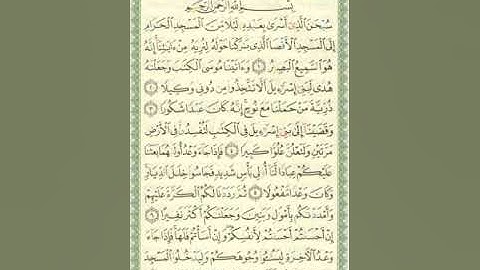 بِسْمِ اللَّهِ الرَّحْمَٰنِ الرَّحِيمِ
سُبْحَٰنَ الَّذِي أَسْرَىٰ بِعَبْدِهِ لَيْلًا مِّنَ الْمَسْجِدِ الْحَرَامِ
إِلَى الْمَسْجِدِ الْأَقْصَا الَّذِي بَٰرَكْنَا حَوْلَهُ لِنُرِيَهُ مِنْ ءَايَٰتِنَا إِنَّهُ
هُوَ السَّمِيعُ الْبَصِيرُ ١ وَءَاتَيْنَا مُوسَى الْكِتَٰبَ وَجَعَلْنَٰهُ
هُدًى لِّبَنِي إِسْرَٰءِيلَ أَلَّا تَتَّخِذُوا مِن دُونِي وَكِيلًا ٢
ذُرِّيَّةَ مَنْ حَمَلْنَا مَعَ نُوحٍ إِنَّهُ كَانَ عَبْدًا شَكُورًا ٣
وَقَضَيْنَا إِلَىٰ بَنِي إِسْرَٰءِيلَ فِي الْكِتَٰبِ لَتُفْسِدُنَّ فِي الْأَرْضِ
مَرَّتَيْنِ وَلَتَعْلُنَّ عُلُوًّا كَبِيرًا ٤ فَإِذَا جَاءَ وَعْدُ أُولَىٰهُمَا بَعَثْنَا
عَلَيْكُمْ عِبَادًا لَّنَا أُولِي بَأْسٍ شَدِيدٍ فَجَاسُوا خِلَٰلَ الدِّيَارِ
وَكَانَ وَعْدًا مَّفْعُولًا ٥ ثُمَّ رَدَدْنَا لَكُمُ الْكَرَّةَ عَلَيْهِمْ
وَأَمْدَدْنَٰكُم بِأَمْوَٰلٍ وَبَنِينَ وَجَعَلْنَٰكُمْ أَكْثَرَ نَفِيرًا ٦
إِنْ أَحْسَنتُمْ أَحْسَنتُمْ لِأَنفُسِكُمْ وَإِنْ أَسَأْتُمْ فَلَهَا فَإِذَا جَاءَ
وَعْدُ الْآخِرَةِ لِيَسُءُوا وُجُوهَكُمْ وَلِيَدْخُلُوا الْمَسْجِدَ